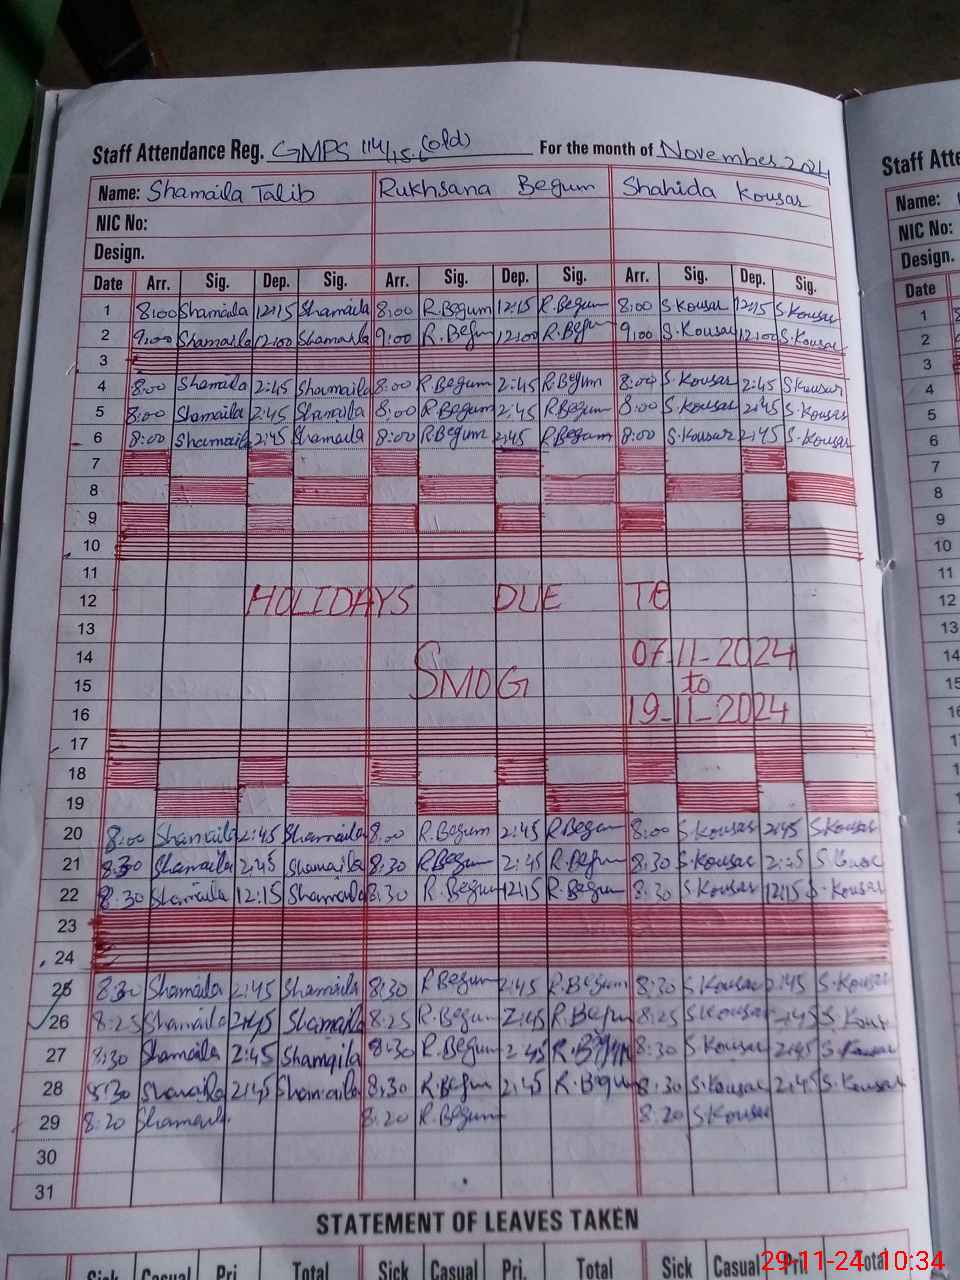 Staff Attendance Reg. GMPS 114/15.(old) For the month of November 2024
Name: Shamaila Talib Rukhsana Begum Shahida Kousar
NIC No:
Design.
Date Arr. Sig. Dep. Sig. Arr. Sig. Dep. Sig. Arr. Sig. Dep. Sig.
1 8:00 Shamaila 12:15 Shamaila 8:00 R.Begum 12:15 R.Begum 8:00 S.Kousar 12:15 S.Kousar
2 9:00 Shamaila 12:00 Shamaila 9:00 R.Begum 12:00 R.Begum 9:00 S.Kousar 12:00 S.Kousar
3
4 8:00 Shamaila 2:45 Shamaila 8:00 R.Begum 2:45 R.Begum 8:00 S.Kousar 2:45 S.Kousar
5 8:00 Shamaila 2:45 Shamaila 8:00 R.Begum 2:45 R.Begum 8:00 S.Kousar 2:45 S.Kousar
6 8:00 Shamaila 2:45 Shamaila 8:00 R.Begum 2:45 R.Begum 8:00 S.Kousar 2:45 S.Kousar
7
8
9
10
11
12 HOLIDAYS DUE TO
13
14 07-11-2024
15 SMOG to
16 19-11-2024
17
18
19
20 8:00 Shamaila 2:45 Shamaila 8:00 R.Begum 2:45 R.Begum 8:00 S.Kousar 2:45 S.Kousar
21 8:30 Shamaila 2:45 Shamaila 8:30 R.Begum 2:45 R.Begum 8:30 S.Kousar 2:45 S.Kousar
22 8:30 Shamaila 12:15 Shamaila 8:30 R.Begum 12:15 R.Begum 8:30 S.Kousar 12:15 S.Kousar
23
24
25 8:30 Shamaila 2:45 Shamaila 8:30 R.Begum 2:45 R.Begum 8:30 S.Kousar 2:45 S.Kousar
26 8:25 Shamaila 2:45 Shamaila 8:25 R.Begum 2:45 R.Begum 8:25 S.Kousar 2:45 S.Kousar
27 8:30 Shamaila 2:45 Shamaila 8:30 R.Begum 2:45 R.Begum 8:30 S.Kousar 2:45 S.Kousar
28 8:30 Shamaila 2:45 Shamaila 8:30 R.Begum 2:45 R.Begum 8:30 S.Kousar 2:45 S.Kousar
29 8:20 Shamaila 8:20 R.Begum 8:20 S.Kousar
30
31
STATEMENT OF LEAVES TAKEN
Sick Casual Pri. Total Sick Casual Pri. Total Sick Casual Pri. Total
29-11-24 10:34
Staff
Name:
NIC No:
Design.
Date
1
2
3
4
5
6
7
8
9
10
11
12
13
14
15
16